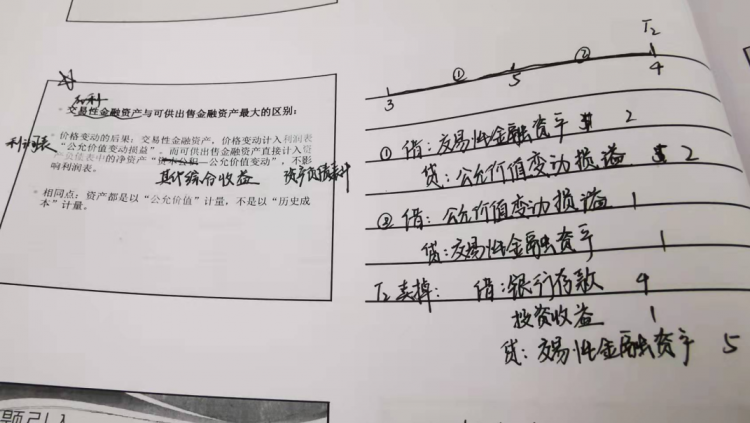 权利
• 交易性金融资产与可供出售金融资产最大的区别:
• 价格变动的后果:交易性金融资产,价格变动计入利润表
利润表
“公允价值变动损益”,而可供出售金融资产直接计入资
产负债表中的净资产“资本公积—公允价值变动”,不影
响利润表。
其他综合收益 资产负债表
• 相同点:资产都是以“公允价值”计量,不是以“历史成
本”计量。
T2
① ②
3 5 4
① 借:交易性金融资产 2
贷:公允价值变动损益 2
② 借:公允价值变动损益 1
贷:交易性金融资产 1
T2卖掉: 借:银行存款 4
投资收益 1
贷:交易性金融资产 5
题引入